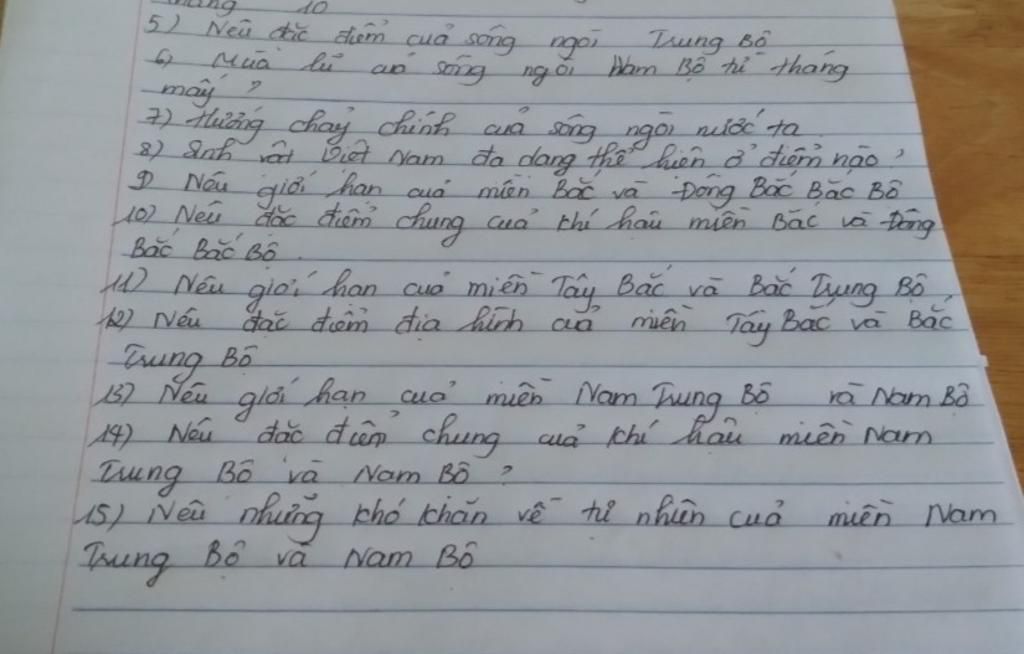 tháng 10
5) Nêu đặc điểm của sông ngòi Trung Bộ
6) Mùa lũ của sông ngòi Nam Bộ từ tháng
mấy ?
7) Hướng chảy chính của sông ngòi nước ta
8) Sinh vật Việt Nam đa dạng thể hiện ở điểm nào ?
9) Nêu giới hạn của miền Bắc và Đông Bắc Bắc Bộ
10) Nêu đặc điểm chung của khí hậu miền Bắc và Đông
Bắc Bắc Bộ .
11) Nêu giới hạn của miền Tây Bắc và Bắc Trung Bộ
12) Nêu đặc điểm địa hình của miền Tây Bắc và Bắc
Trung Bộ
13) Nêu giới hạn của miền Nam Trung Bộ và Nam Bộ
14) Nêu đặc điểm chung của khí hậu miền Nam
Trung Bộ và Nam Bộ ?
15) Nêu những khó khăn về tự nhiên của miền Nam
Trung Bộ và Nam Bộ